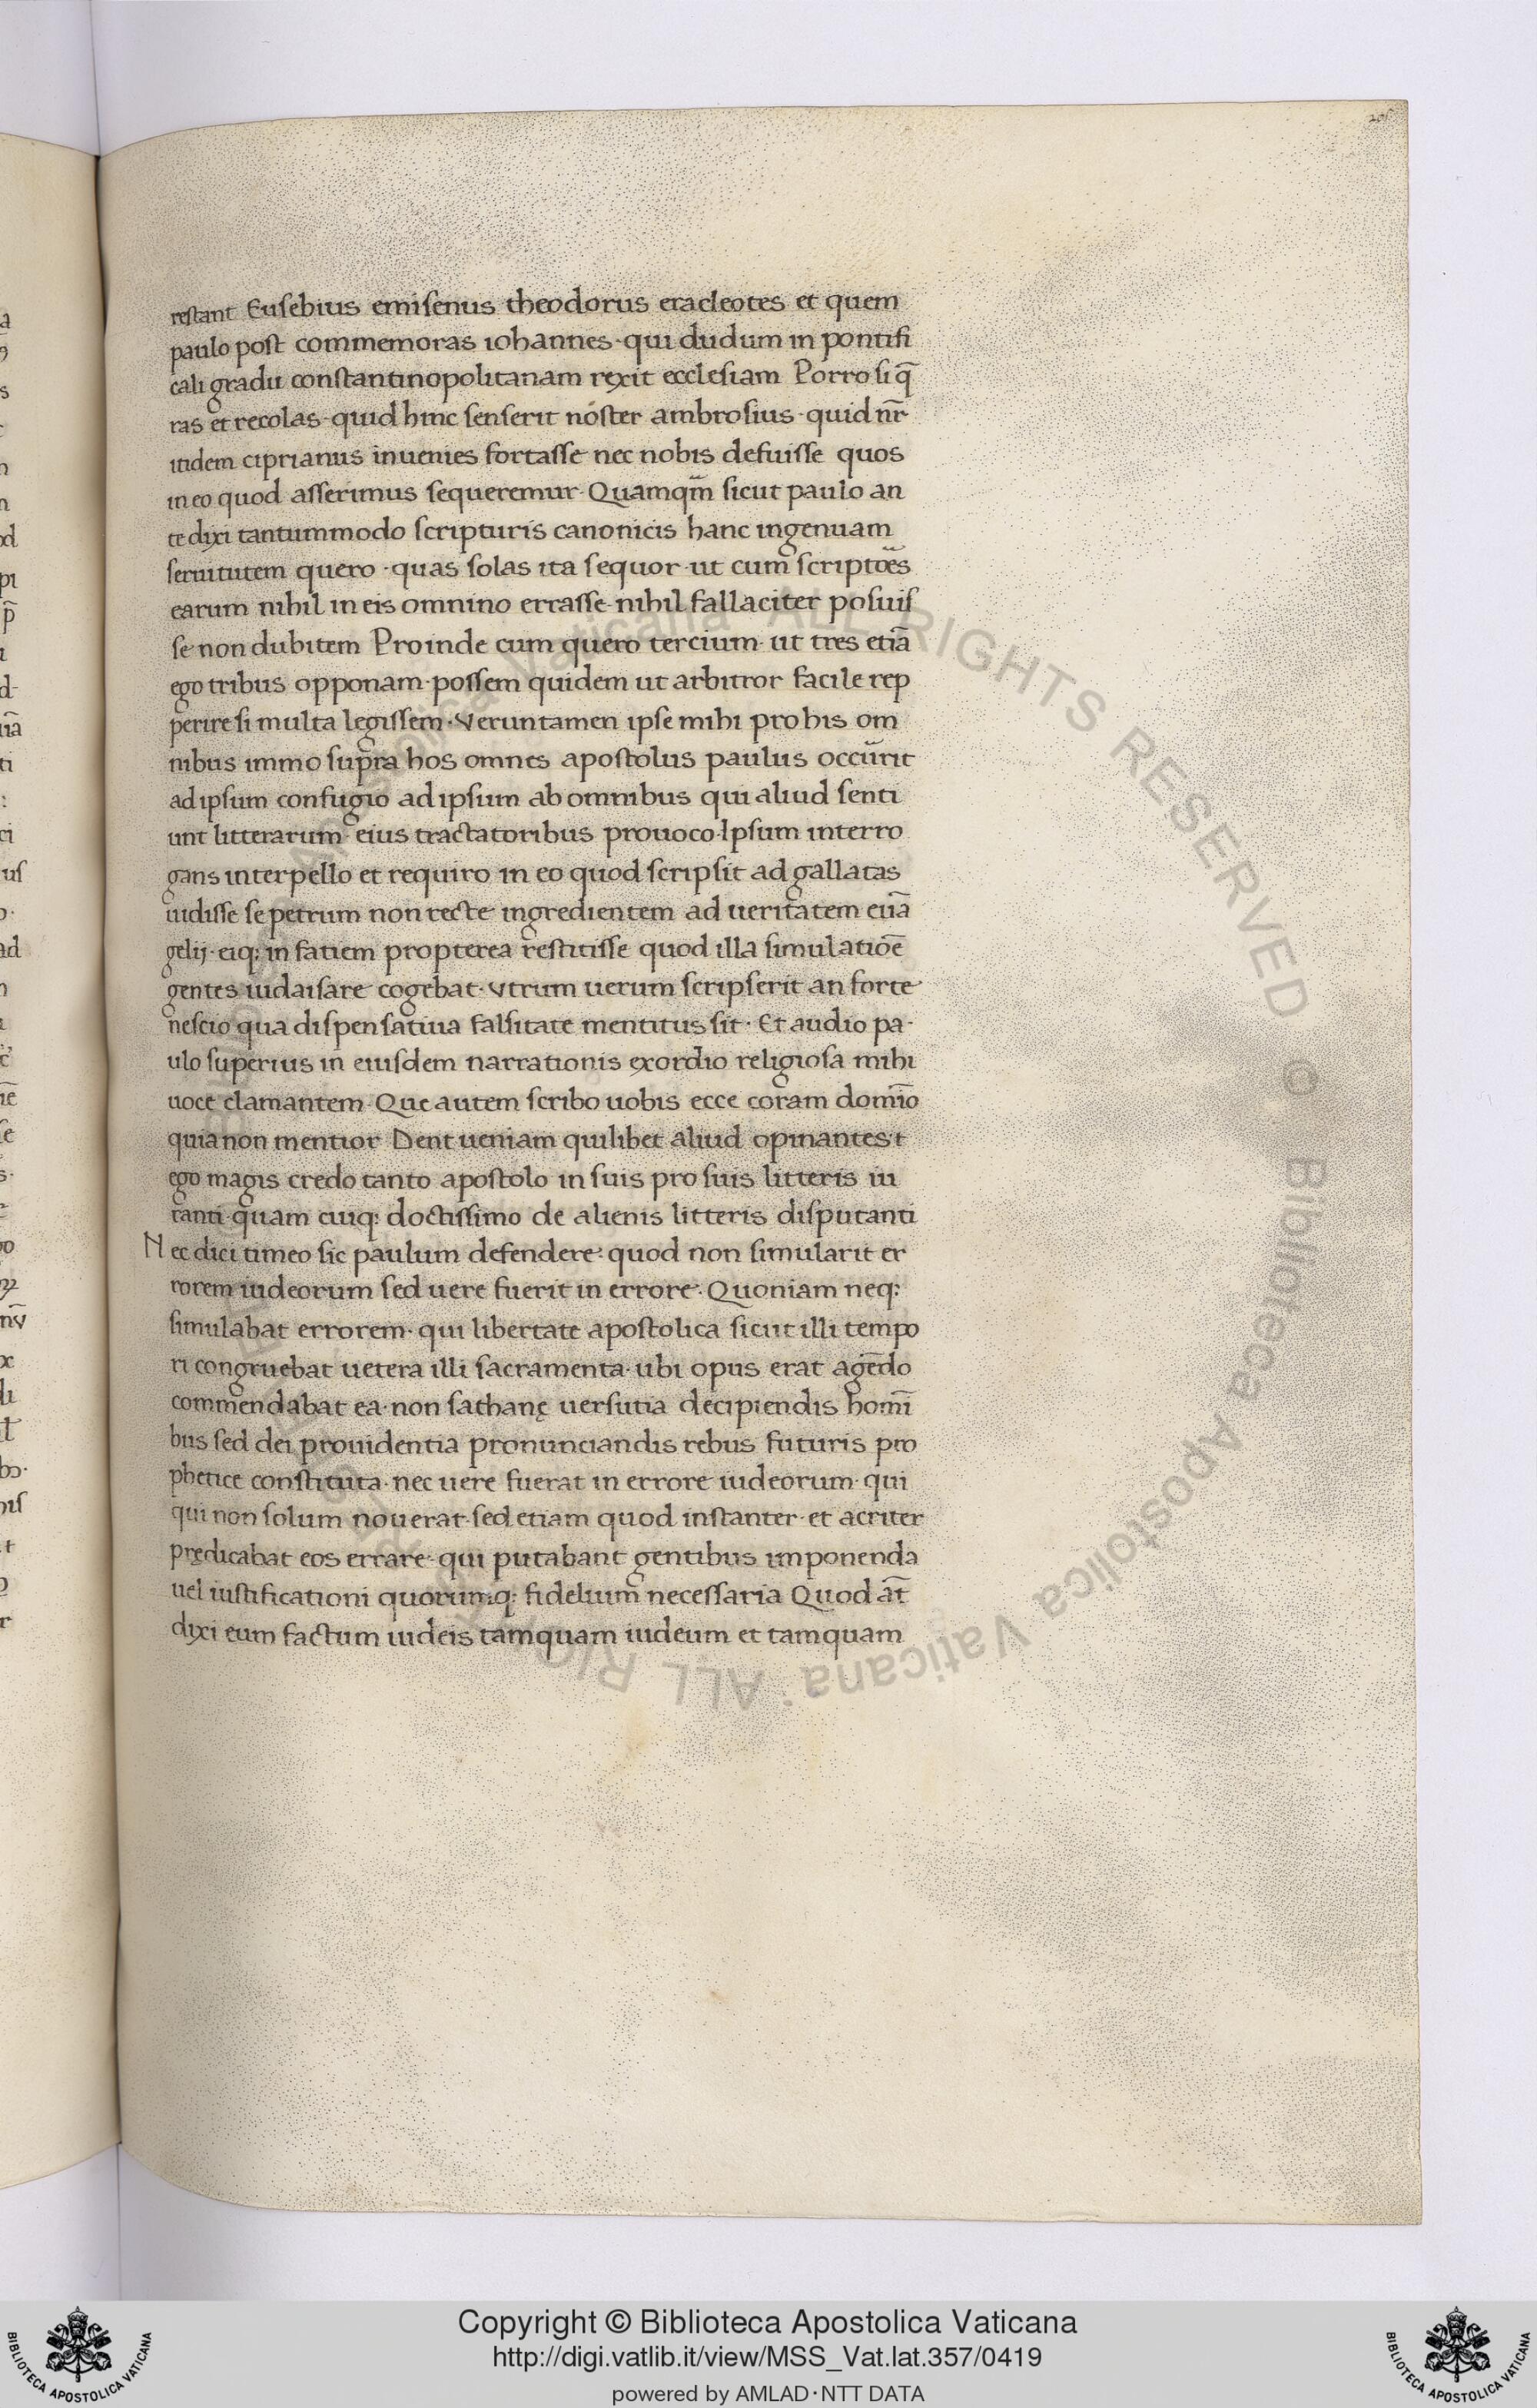 205
restant Eusebius emisenus theodorus eracleotes et quem
paulo post commemoras iohannes · qui dudum in pontifi
cali gradu constantinopolitanam rexit ecclesiam Porro si q̄
ras et recolas · quid hinc senserit nóster ambrosius · quid nr̄
itidem ciprianus inuenies fortasse nec nobis defuisse quos
in eo quod asserimus sequeremur · Quamqm̄ sicut paulo an
te dixi tantummodo scripturis canonicis hanc ingenuam
seruitutem quero · quas solas ita sequor · ut cum scriptōes
earum nihil in eis omnino errasse · nihil fallaciter posuis
se non dubitem Proinde cum quero tercium · ut tres etiā
ego tribus opponam · possem quidem ut arbitror facile rep
perire si multa legissem · Veruntamen ipse mihi pro his om
nibus immo supra hos omnes apostolus paulus occurit
ad ipsum confugio ad ipsum ab omnibus qui aliud senti
unt litterarum eius tractatoribus prouoco · Ipsum interro
gans interpello et requiro in eo quod scripsit ad gallatas
uidisse se petrum non recte ingredientem ad ueritatem euā
gelij · eiq: in fatiem propterea restitisse quod illa simulatiōe
gentes iudaisare cogebat · Vtrum uerum scripserit an forte
nescio qua dispensatiua falsitate mentitus sit · Et audio pa-
ulo superius in eiusdem narrationis exordio religiosa mihi
uoce clamantem · Que autem scribo uobis ecce coram domīo
quia non mentior Dent ueniam quilibet aliud opinantes t
ego magis credo tanto apostolo in suis pro suis litteris iu
ranti · quam cuiq: doctissimo de alienis litteris disputanti
Nec dici timeo sic paulum defendere · quod non simularit er
rorem iudeorum sed uere fuerit in errore · Quoniam neq:
simulabat errorem · qui libertate apostolica sicut illi tempo
ri congruebat uetera illi sacramenta · ubi opus erat agēdo
commendabat ea · non sathanę uersutia decipiendis homī
bus sed dei prouidentia pronunciandis rebus futuris pro
phetice constituta · nec uere fuerat in errore iudeorum · qui
qui non solum nouerat · sed etiam quod instanter · et acriter
prędicabat eos errare · qui putabant gentibus imponenda
uel iustificationi quorumq: fidelium necessaria Quod at̄
dixi eum factum iudeis tamquam iudeum et tamquam
Copyright © Biblioteca Apostolica Vaticana
http://digi.vatlib.it/view/MSS_Vat.lat.357/0419
powered by AMLAD · NTT DATA